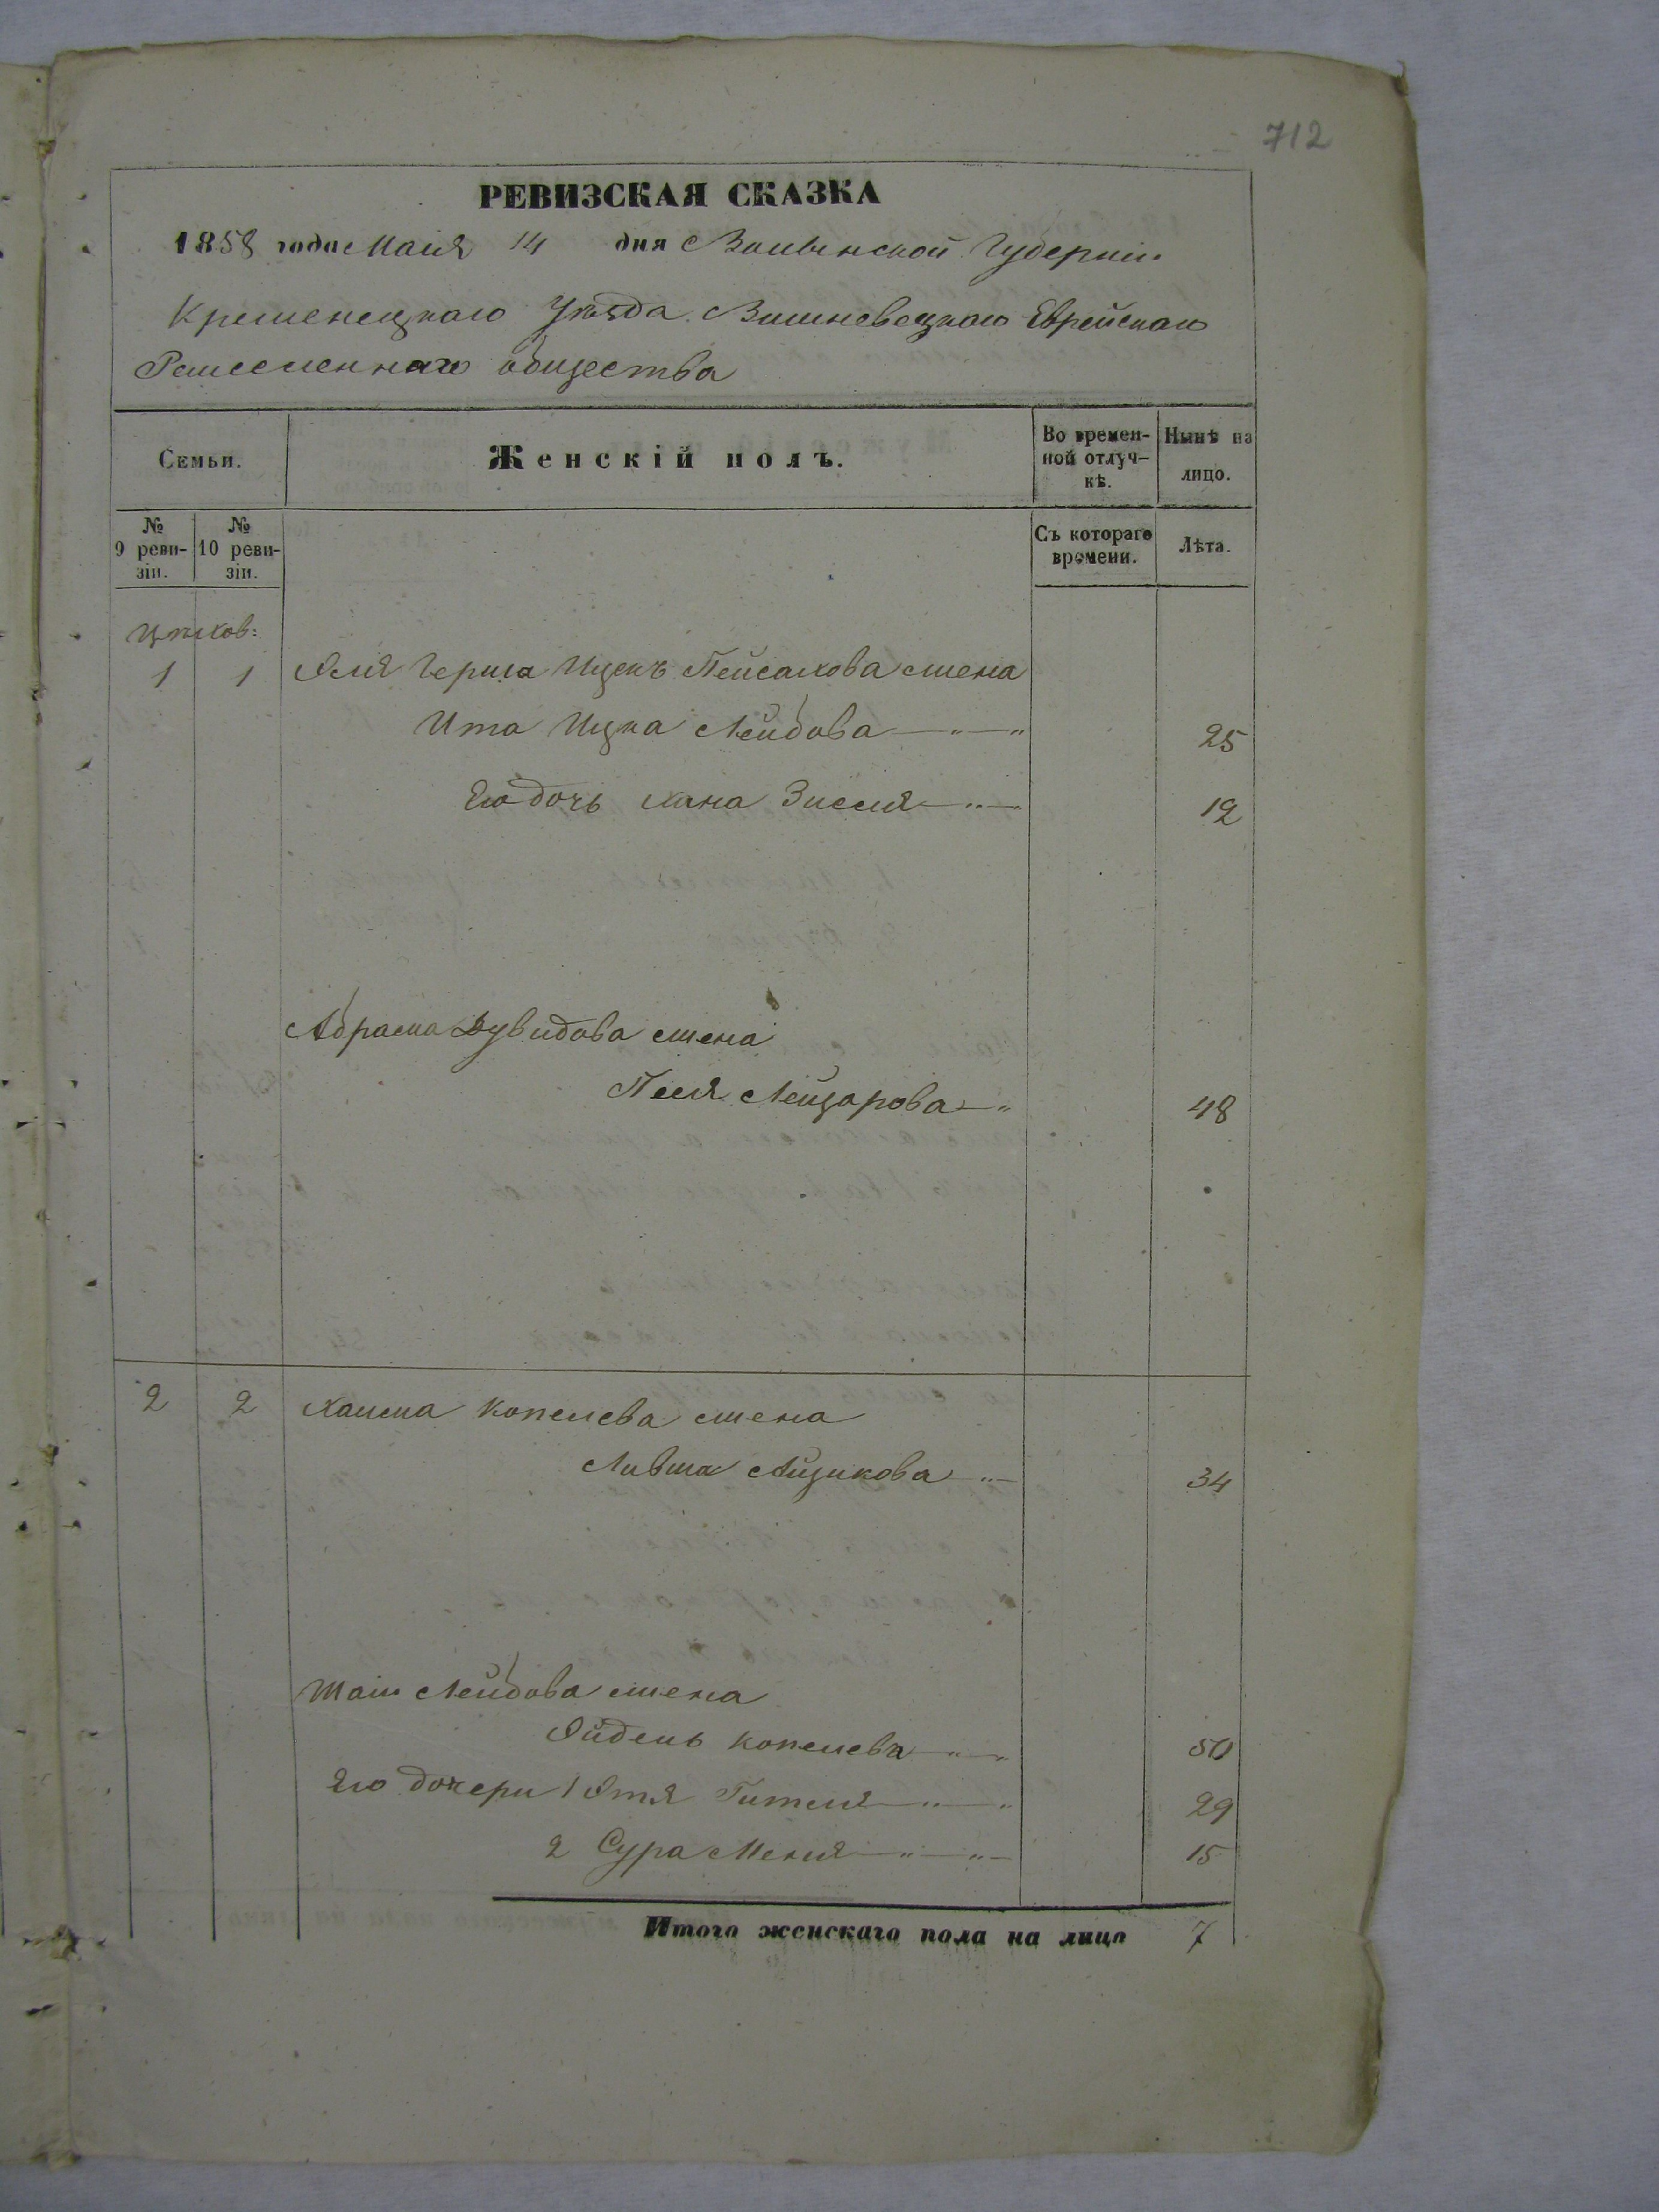 712
РЕВИЗСКАЯ СКАЗКА
1858 года Маія 14 дня Волынской Губерніи
Кременецкаго Уѣзда Вишневецкаго Еврейскаго
Ремесленнаго общества
Семьи.
Женскій полъ.
Во времен-
ной отлуч-
кѣ.
Нынѣ на
лицо.
№
9 реви-
зіи.
№
10 реви-
зіи.
Съ котораго
времени.
Лѣта.
1 1 Герша Ицекъ Пейсахова жена
Ита Ицка Лейбова 25
Его дочь Хана Зисля 12
Абрама Дувидова жена
Песя Лейзарова 48
2 2 Хаима Копелева жена
Ливша Айзикова 34
Лейбова жена
Эйдель Копелева 50
Его дочери 1 Этя Гителя 29
2 Сура Меня 15
Итого женскаго пола на лицо 7